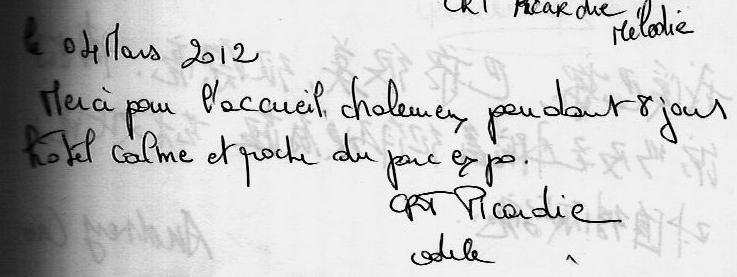 CRT Picardie
Mélodie
le 04 Mars 2012
Merci pour l'accueil chaleureux pendant 8 jours
hôtel calme et proche du parc expo.
CRT Picardie
odile